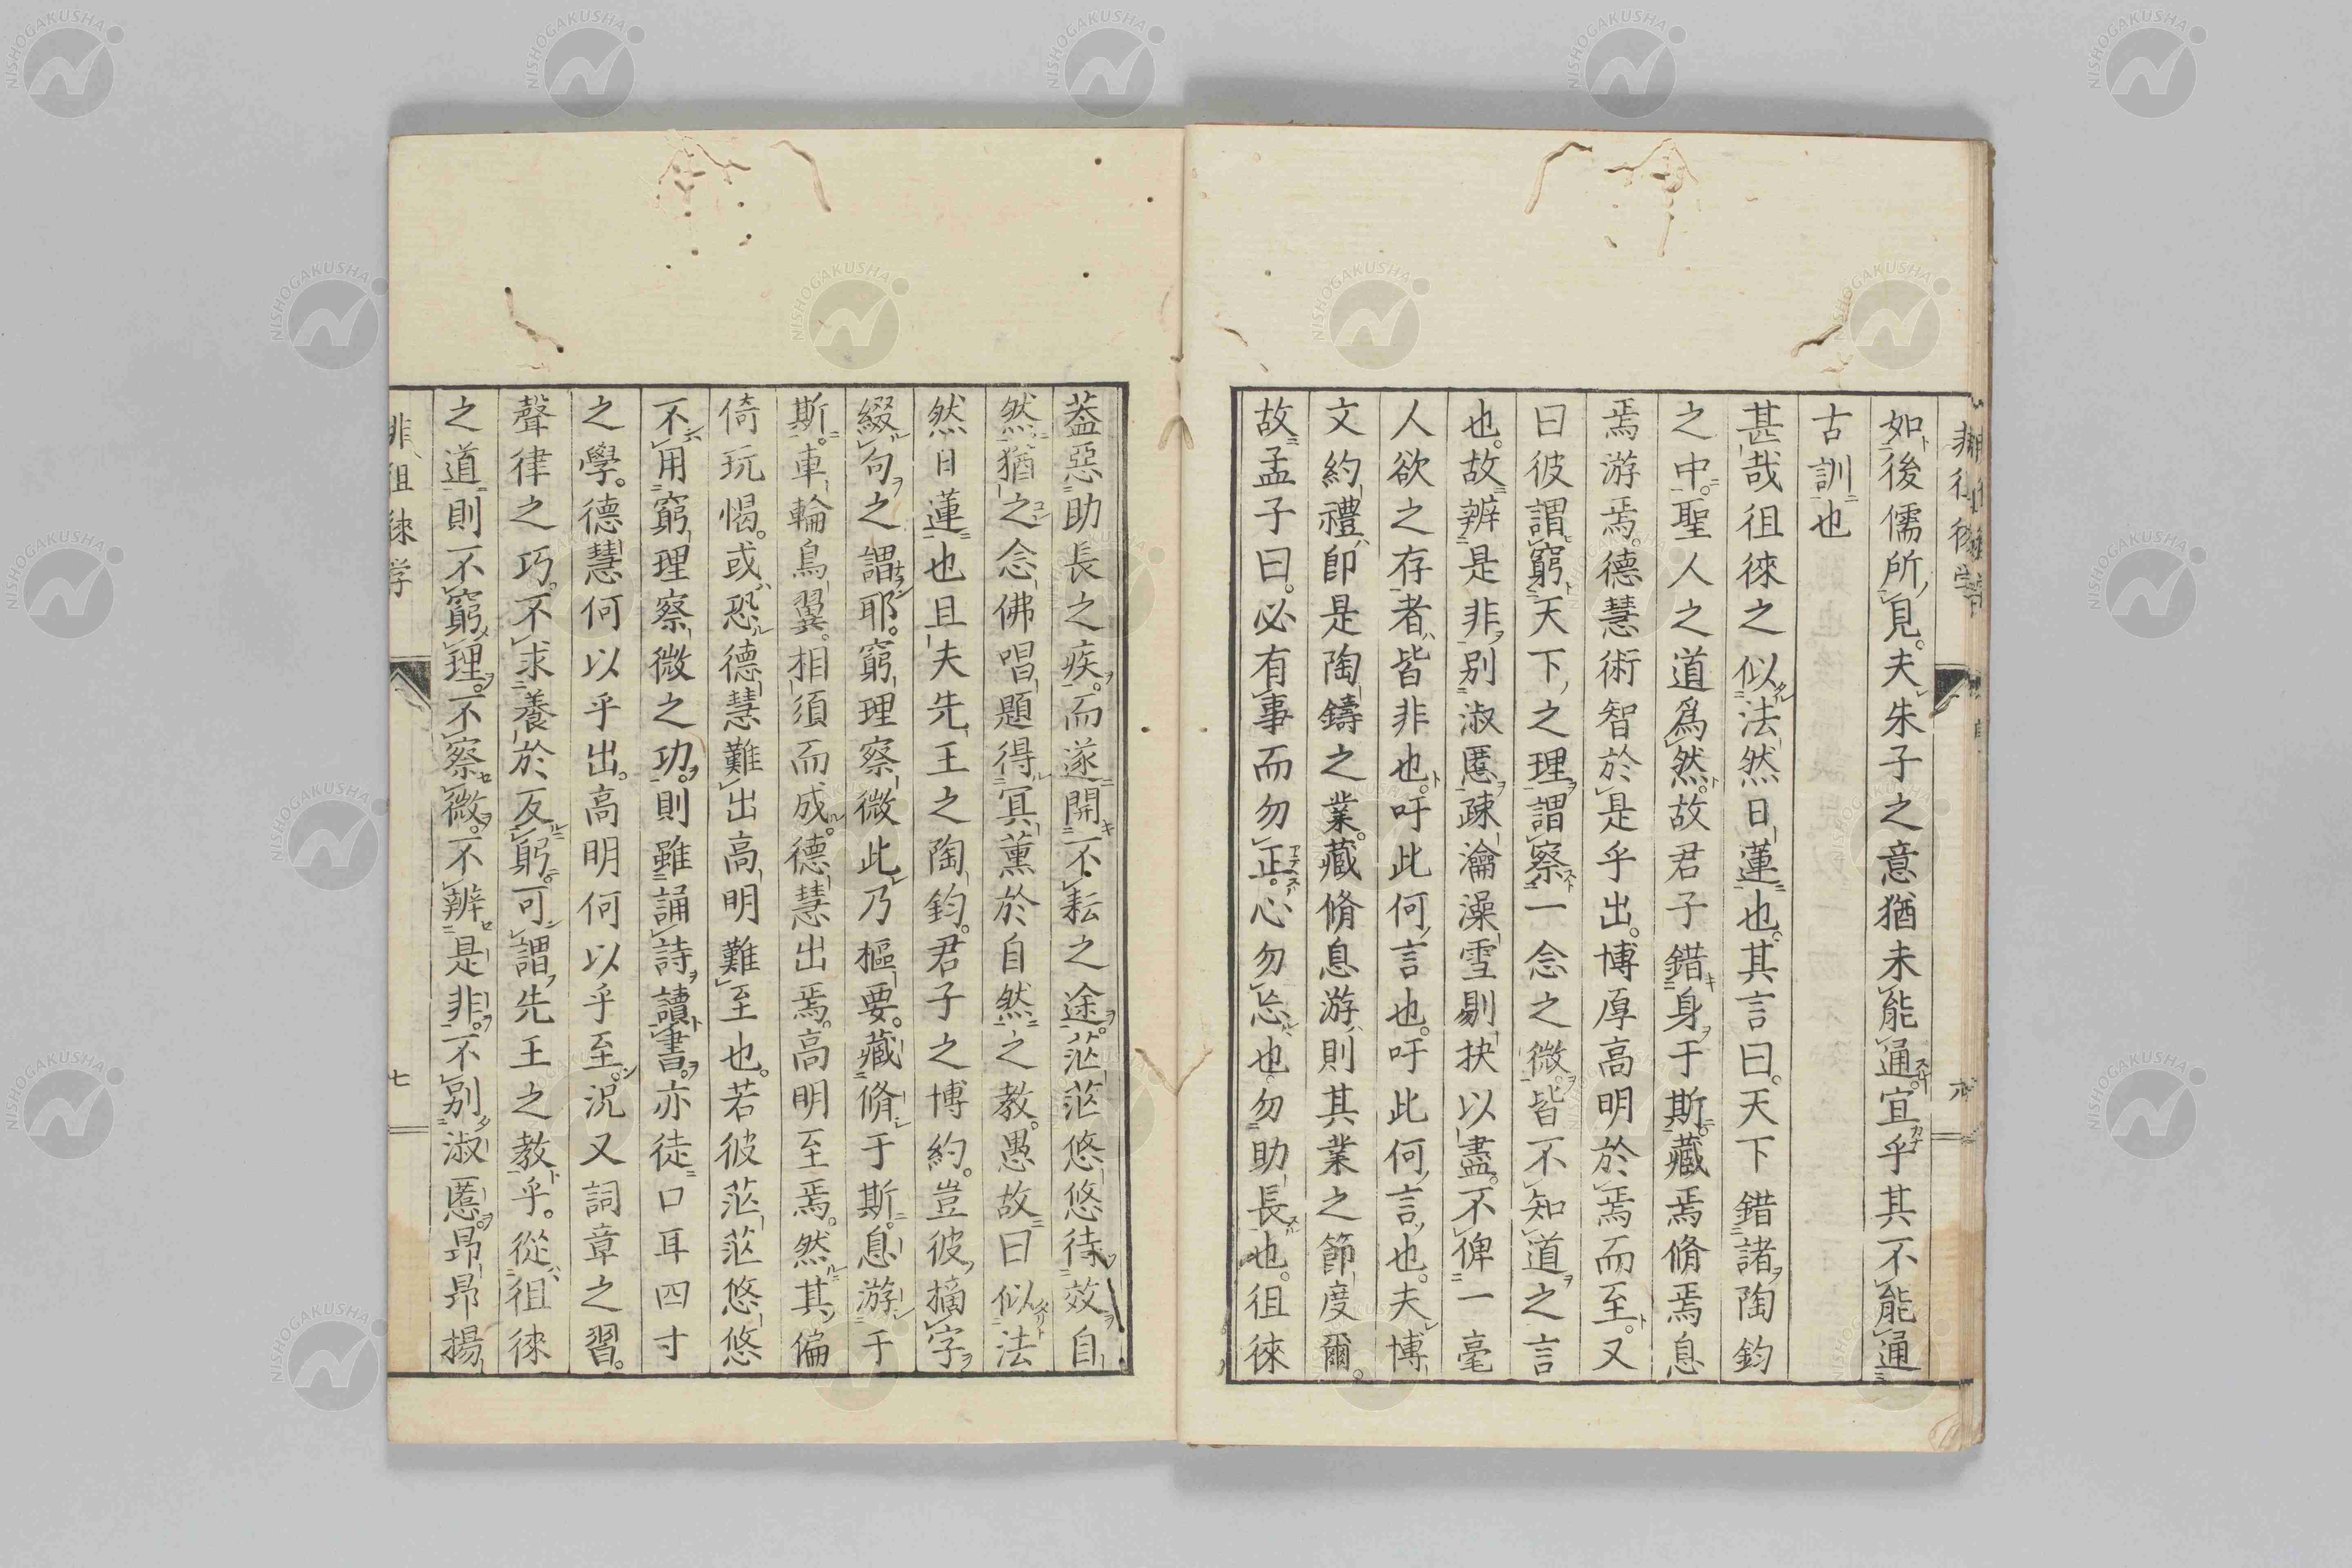 如後儒所見。夫朱子之意猶未能通。宜乎其不能通
古訓也
甚哉徂徠之似法然日蓮也。其言曰。天下錯諸陶鈞
之中。聖人之道爲然。故君子錯身于斯。藏焉脩焉息
焉游焉。德慧術智於是乎出。博厚高明於焉而至。又
曰彼謂窮天下之理。謂察一念之微。皆不知道之言
也。故辨是非。別淑慝。疎瀹澡雪剔抉以盡。不俾一毫
人欲之存者。皆非也。吁此何言也。吁此何言也。夫博
文約禮。卽是陶鑄之業。藏脩息游。則其業之節度爾。
故孟子曰。必有事而勿正。心勿忘也。勿助長也。徂徠
蓋惡助長之疾。而遂開不耘之途。茫茫悠悠待效自
然。猶之念佛唱題得冥薰於自然之教。愚故曰似法
然日蓮也。且夫先王之陶鈞。君子之博約。豈彼摘字
綴句之謂耶。窮理察微此乃樞要。藏脩于斯。息游于
斯。車輪鳥翼。相須而成。德慧出焉。高明至焉。然其偏
倚玩愒。或恐德慧難出高明難至也。若彼茫茫悠悠
不用窮理察微之功。則雖誦詩讀書。亦徒口耳四寸
之學。德慧何以乎出。高明何以乎至。況又詞章之習。
聲律之巧。不求養於反躬。可謂先王之教乎。從徂徠
之道則不窮理。不察微。不辨是非。不別淑慝。昻昻揚
非徂徠学
七